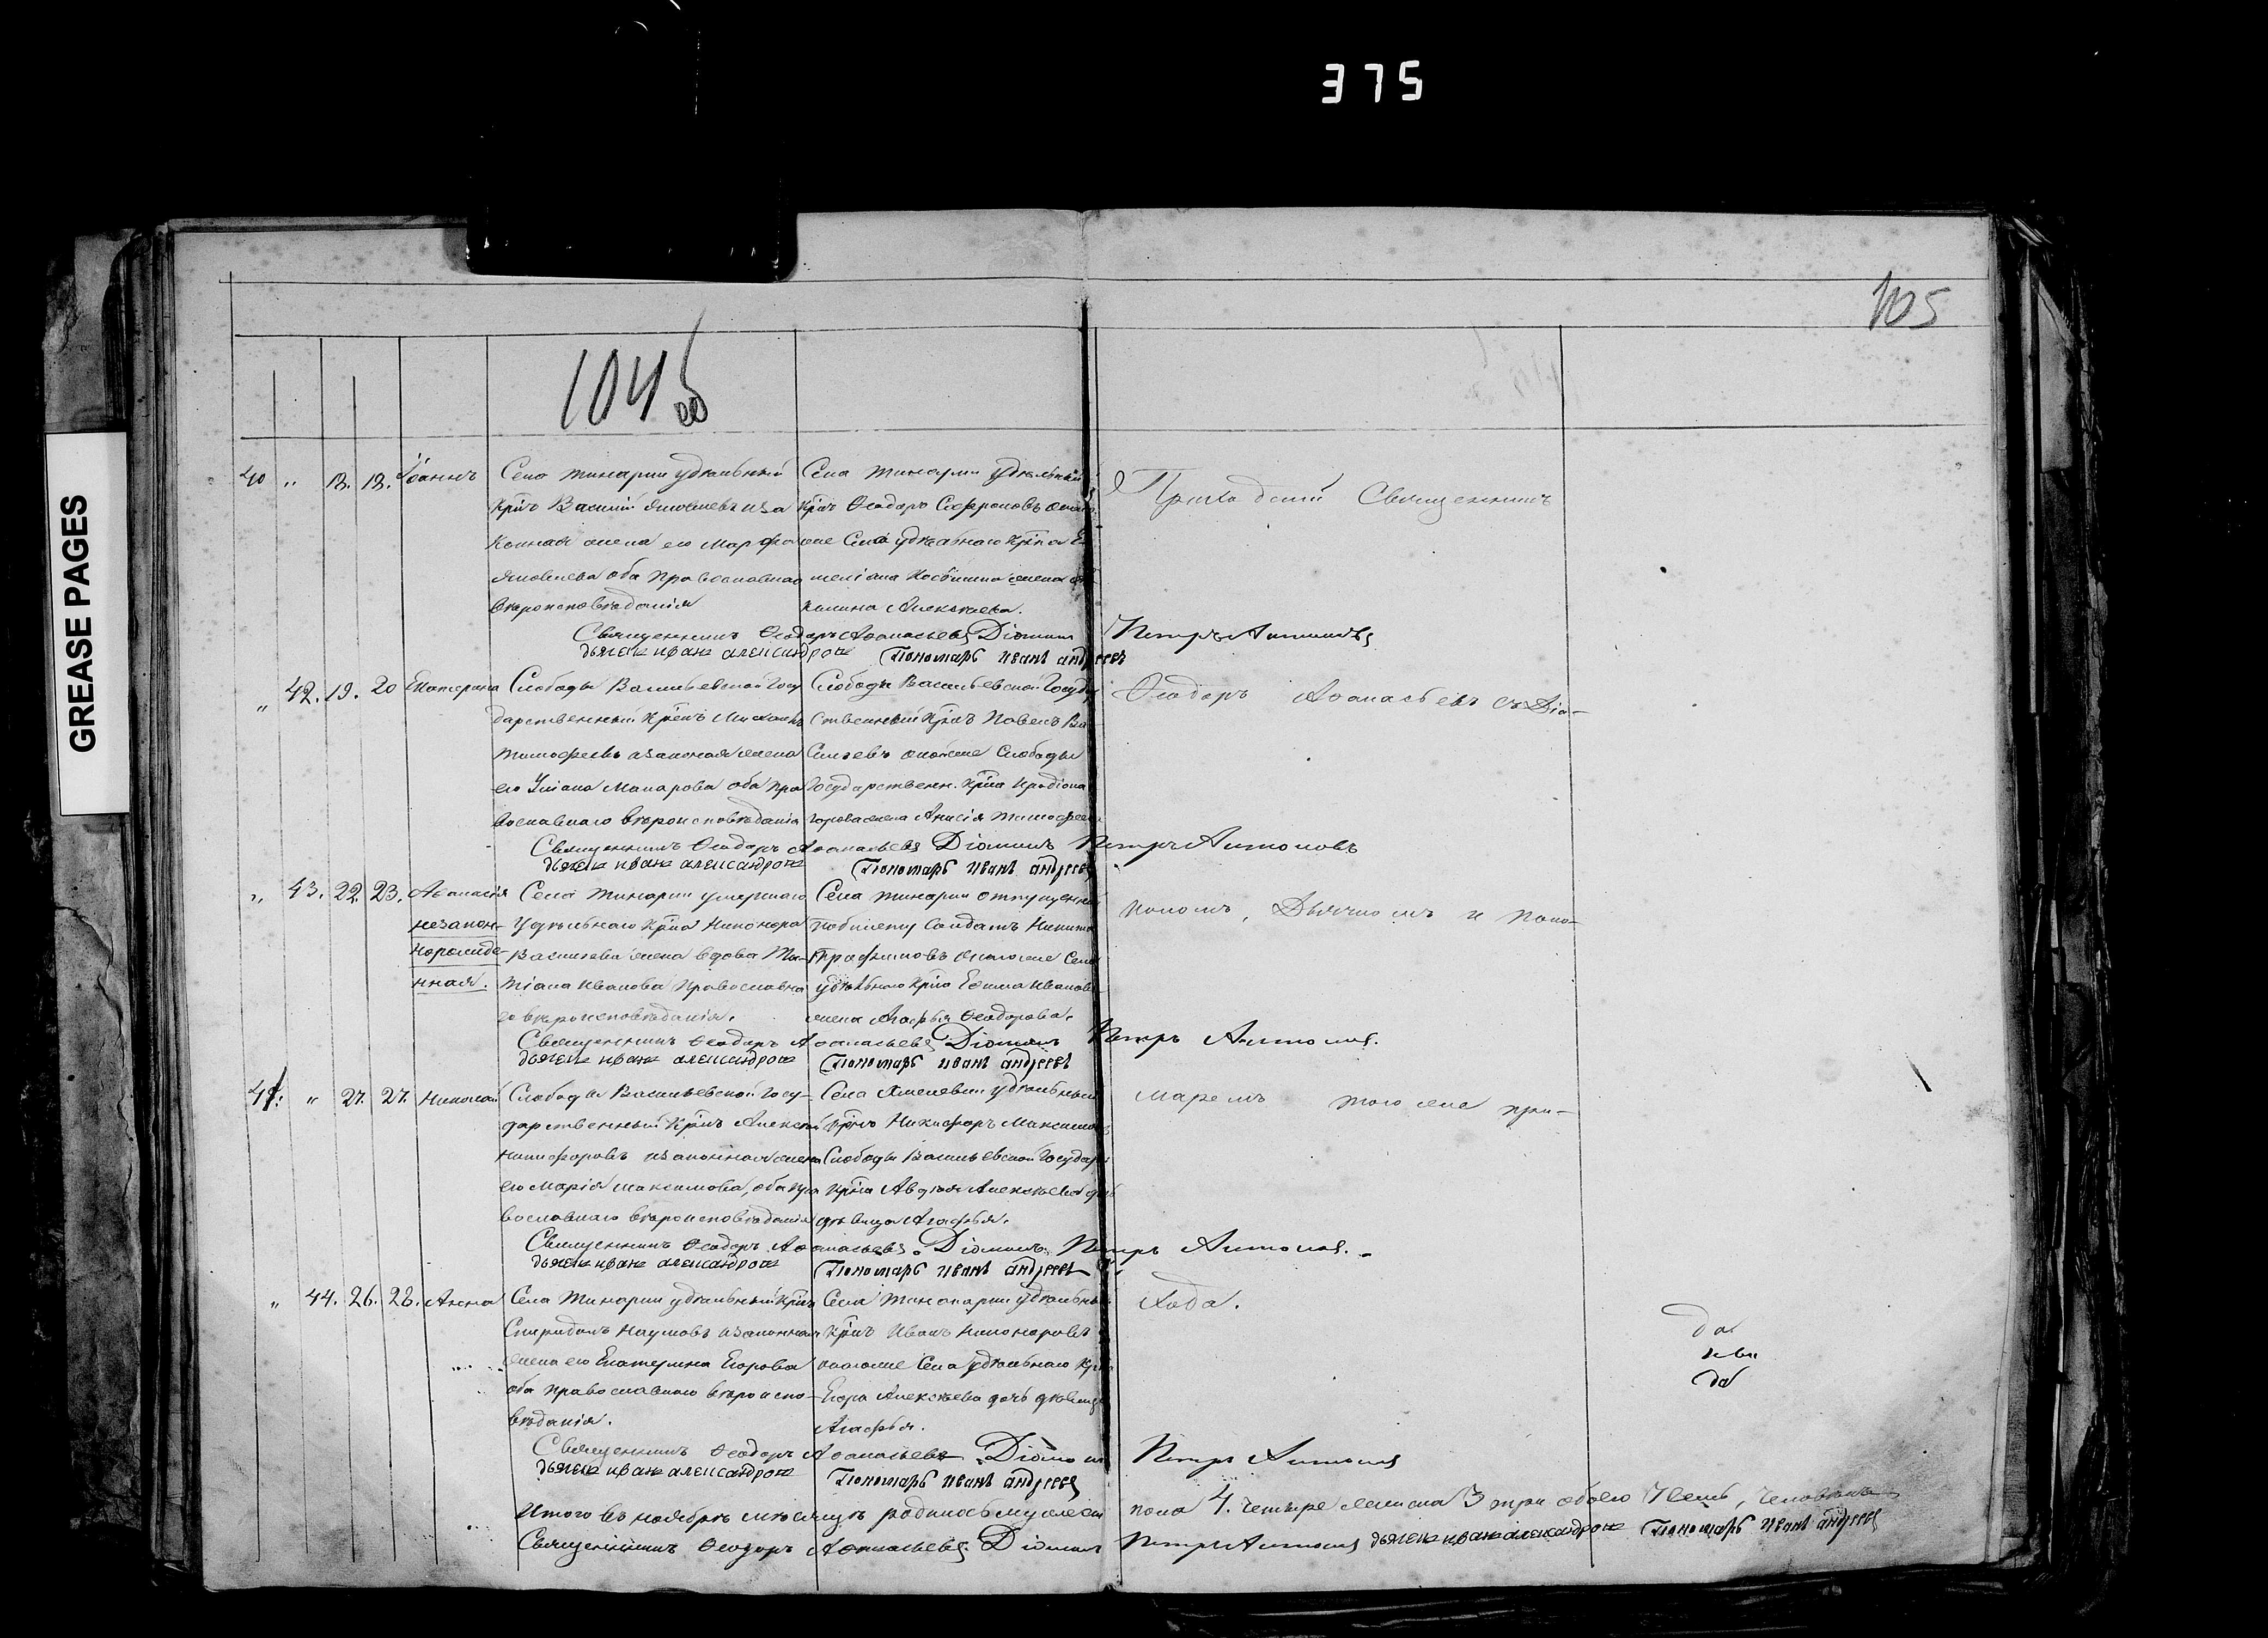 375
GREASE PAGES
105
104 об
40 " 13. 13. Іоаннъ
Села Тинарии удѣльный
крѣ Василий Яковлевъ иза
конная жена его Марфа
Яковлева оба православнаго
вѣроисповѣданія
Села Тинарии удѣльный
Крѣ Ѳеодоръ Софроновъ
села удѣльнаго крѣ
жена
Алексѣева.
Приходский Священникъ
Священникъ Ѳеодоръ Аѳанасьевъ Діаконъ Петръ Антоновъ
дьячекъ иванъ александровъ Пономарь иванъ андреевъ
" 42. 19. 20 Екатерина
Слободы Васильевской Госу
дарственный крѣ
Тимоѳеевъ изаконная жена
его Уліана Макарова оба пра
вославнаго вѣроисповѣданія
Слободы Васильевской Госуда
ственный крѣ Павелъ Ва
сильевъ Слободы
Государственн. крѣ Иродіона
жена Анисія Тимоѳеева
Ѳеодоръ Аѳанасьевъ съ Діа-
Священникъ Ѳеодоръ Аѳанасьевъ Діаконъ Петръ Антоновъ
дьячекъ иванъ александровъ Пономарь иванъ андреевъ
" 43. 22. 23. Аѳанасія
незакон-
норожде-
нная.
Села Тинарии умершаго
Удѣльнаго крѣ Никонора
Васильева жена вдова Та-
тіана Иванова православна
го вѣроисповѣданія.
Села Тинарии отпущенный
побилету Солдатъ Никита
Трофимовъ села
удѣльнаго крѣ Ефима Иванова
жена Агафья Ѳеодорова.
кономъ, Дьячкомъ и Поно-
Священникъ Ѳеодоръ Аѳанасьевъ Діаконъ Петръ Антоновъ.
дьячекъ иванъ александровъ Пономарь иванъ андреевъ
41. " 27. 27. Николай
Слободы Васильевской Госу-
дарственный крѣ Алексѣй
Никифоровъ изаконная жена
его Марія Максимова, оба пра
вославнаго вѣроисповѣданія
Села удѣльный
крѣ Никифоръ Максимовъ
Слободы Васильевской Государ
крѣ Авдѣя Алексѣева дочь
дѣвица Агафья.
маремъ тогоже при-
Священникъ Ѳеодоръ Аѳанасьевъ. Діаконъ Петръ Антоновъ.
дьячекъ иванъ александровъ Пономарь иванъ андреевъ
" 44. 26. 28. Анна
Села Тинарии удѣльный крѣ
Спиридонъ Наумовъ изаконная
жена его Екатерина Егорова
оба православнаго вѣроиспо-
вѣданія.
Села Тинарии удѣльный
крѣ Иванъ Никоноровъ
села удѣльнаго крѣ
Егора Алексѣева дочь дѣвица
Агафья.
хода.
Священникъ Ѳеодоръ Аѳанасьевъ Діаконъ Петръ Антоновъ
дьячекъ иванъ александровъ Пономарь иванъ андреевъ
Итого въ ноябрѣ мѣсяцѣ родилось мужеска пола 4. четыре женска 3 три обоего 7 семь, человѣкъ
Священникъ Ѳеодоръ Аѳанасьевъ Діаконъ Петръ Антоновъ дьячекъ иванъ александровъ Пономарь иванъ андреевъ